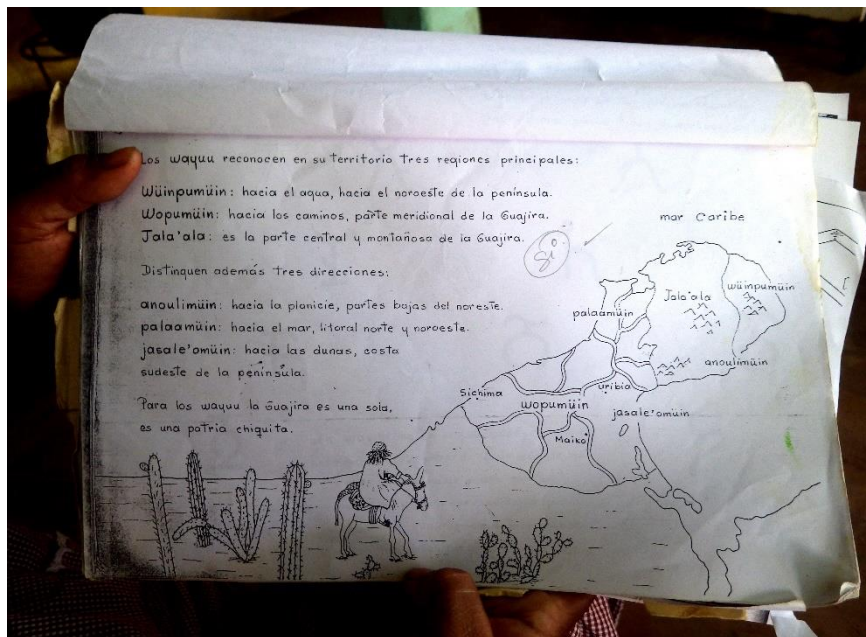 Los wayuu reconocen en su territorio tres regiones principales:
Wüinpumüin: hacia el agua, hacia el noroeste de la península.
Wopumüin: hacia los caminos, parte meridional de la Guajira.
Jala'ala: es la parte central y montañosa de la Guajira.
Si
Distinguen además tres direcciones:
anoulimüin: hacia la planicie, partes bajas del noreste.
palaamüin: hacia el mar, litoral norte y noroeste.
jasale'omüin: hacia las dunas, costa
sudeste de la península.
Para los wayuu la Guajira es una sola,
es una patria chiquita.
mar Caribe
wüinpumüin
Jala'ala
palaamüin
anoulimüin
Sichima
uribia
wopumüin
jasale'omüin
Maiko